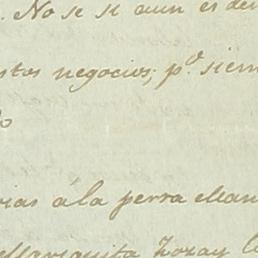 . No se si aun es de
stos negocios; p.º siem
o
rias a la perra Man
Mariquita Zozay l